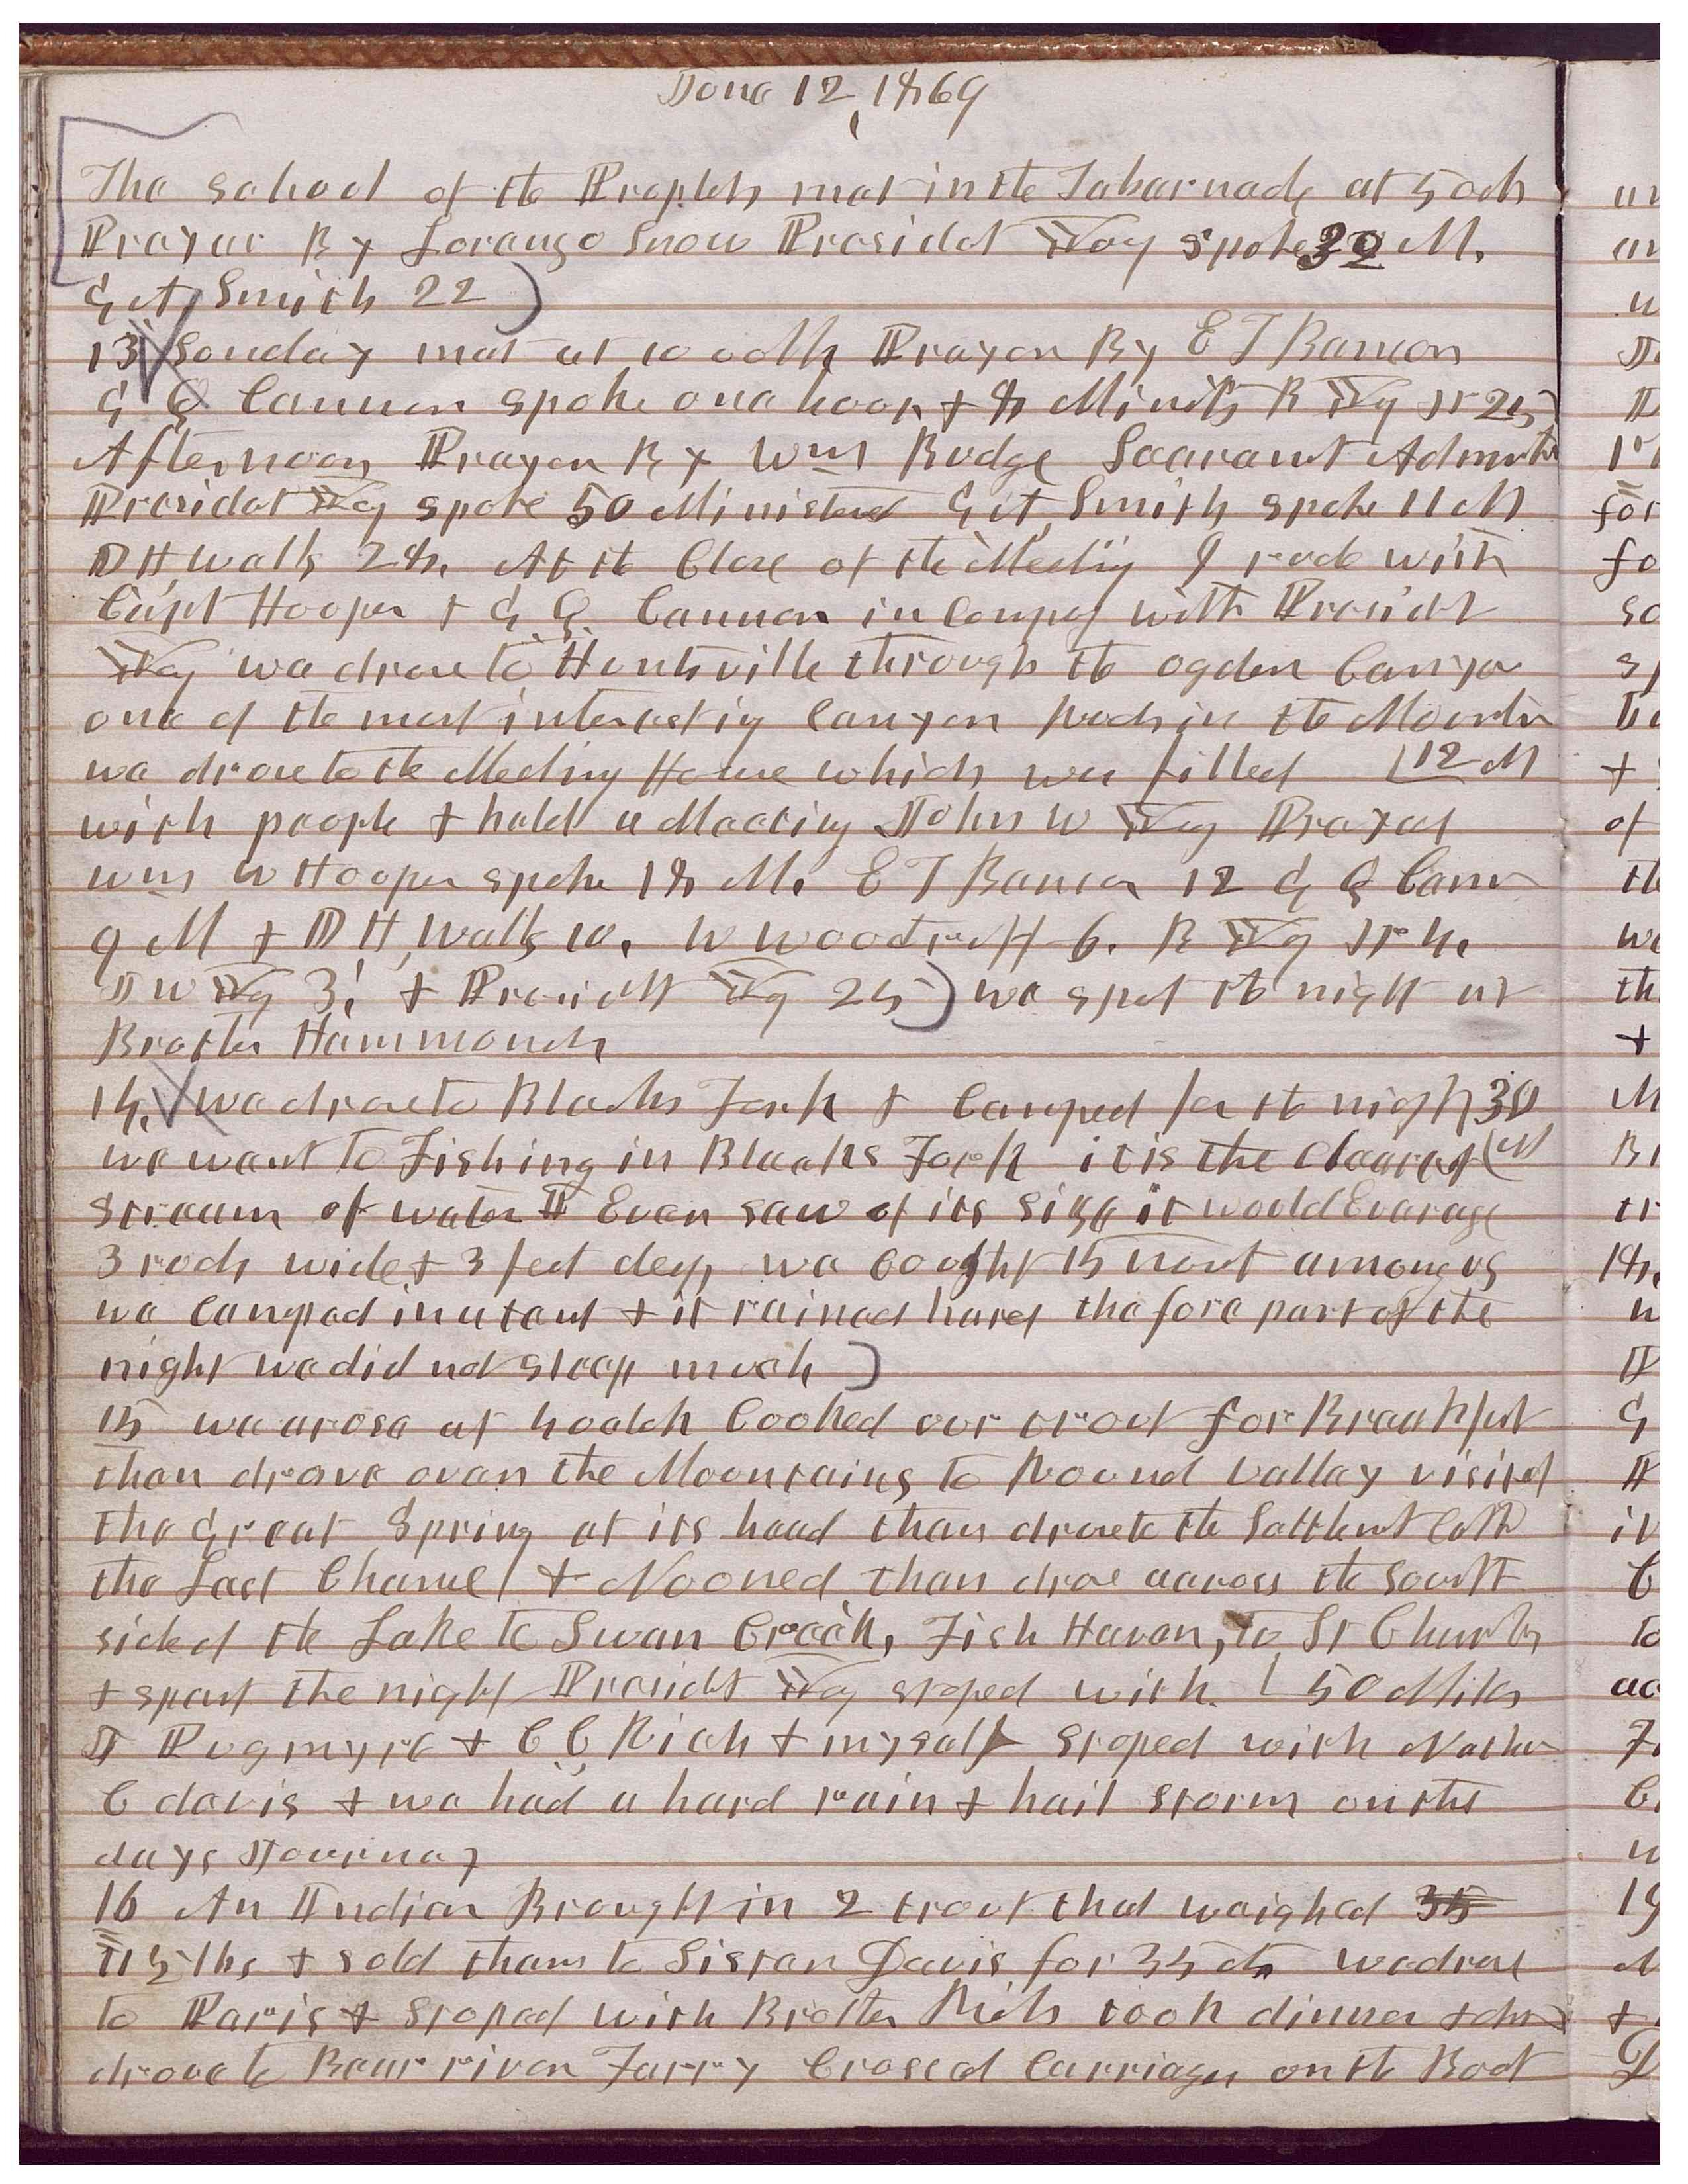 June 12, 1869
The school of the Prophets met in the Tabernacle at 5 och
Prayer By Lorenzo Snow Presidet Yg spoke 32 M.
G A, Smith 22)
13 Sunday met at 10 oclk Prayer By E T Benson
G Q Cannon spoke one hour, & 8 Minuts B Yg jr 25
Afternoon Prayer By Wm Budge Sacrament Admnstr
Presidet Yg spoke 50 Ministers G A, Smith spoke 11 M
D H, Wells 28. At the Close of the Meeting I rode with
Capt Hooper & G Q. Cannon in Company with Presidt
Yg we drove to Huntsville through the ogden Canyon
one of the most interesting Canyon Roads in the Mountn
we drove to the Meeting House which was filled 12 M
with people & held a Meeting John W Yg Prayed
Wm W Hooper spoke 18 M. E T Benson 12 G Q Cann
9 M & D H, Wells 10. W Woodruff 6. B Yg jr 4.
J W Yg 3. & Presidet Yg 25) we spet the night at
Brother Hammonds
14. we drove to Blacks Fork & Camped for the night 30
we went to Fishing in Blacks Fork it is the clearest M
stream of water I Ever saw of its size it would Evarage
3 rods wide & 3 feet deep we Caught 15 trout among us
we Camped in a tent & it rained hard the fore part of the
night we did not sleep much)
15 we arose at 4 oclok Cooked our trout for Breakfast
then drove over the Mountains to Round valley visited
the Great Spring at its head then drove to the Settlemt calld
the Last Chance & Nooned then drove across the South
side of the Lake to Swan Creek, Fish Haven, to St Charles
& spent the night Presidet Yg stoped with 50 Miles
J Pugmyre & C C Rich & myself stoped with Nathan
C davis & we had a hard rain & hail storm on the
days Journey
16 An Indian Brought in 2 trout that weighed 35
11 1/2 lbs & sold them to Sister Davis for 35 cts we drove
to Paris & stoped with Brother Rich took dinner & then
drove to Bear river Ferry Crosed Carriages on the Boat